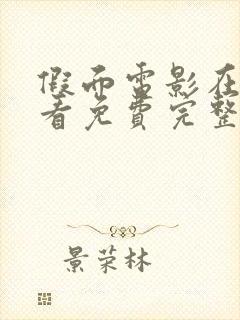 假面雷影在
看免费完整
景荣林